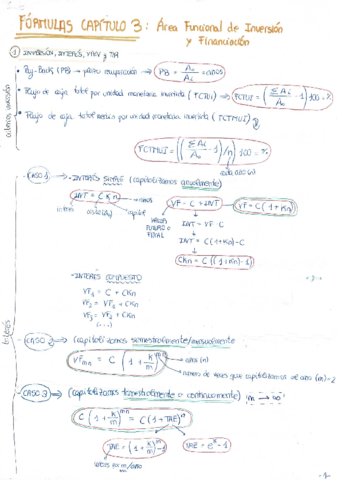 FÓRMULAS CAPÍTULO 3: Área Funcional de Inversión
y Financiación
① INVERSIÓN, INTERÉS, VAN y TIR
criterios inversión
• Pay-Back (PB) → plazo recuperación → PB = A₀ / Ai = años
• Flujo de caja total por unidad monetaria invertida (FCTUI) → FCTUI = ((ΣAi / A₀) - 1) 100 = %
• Flujo de caja total medio por unidad monetaria invertida (FCTMUI)
FCTMUI = (((ΣAi / A₀) - 1) / n) 100 = %
cada año (n)
CASO 1 → (capitalizamos anualmente)
• INTERÉS SIMPLE
INT = C K n → años
interés
capital
VF = C + INT → VF = C (1 + Kn)
VALOR FUTURO O FINAL
INT = VF - C
INT = C(1+Kn) - C
CKn = C ((1+Kn) - 1)
• INTERÉS COMPUESTO
VF₁ = C + CKn
VF₂ = VF₁ + CKn
VF₃ = VF₂ + CKn
(...)
CASO 2 → (capitalizamos semestralmente/mensualmente
VFmn = C (1 + k/m)^mn → años (n)
número de veces que capitalizamos al año (m) = 2
CASO 3 → (capitalizamos trimestralmente o continuamente) m → ∞
C (1 + k/m)^mn = C (1 + TAE)^n
TAE = (1 + k/m)^m - 1
TAE = e^k - 1
veces por m/año
- 1 -